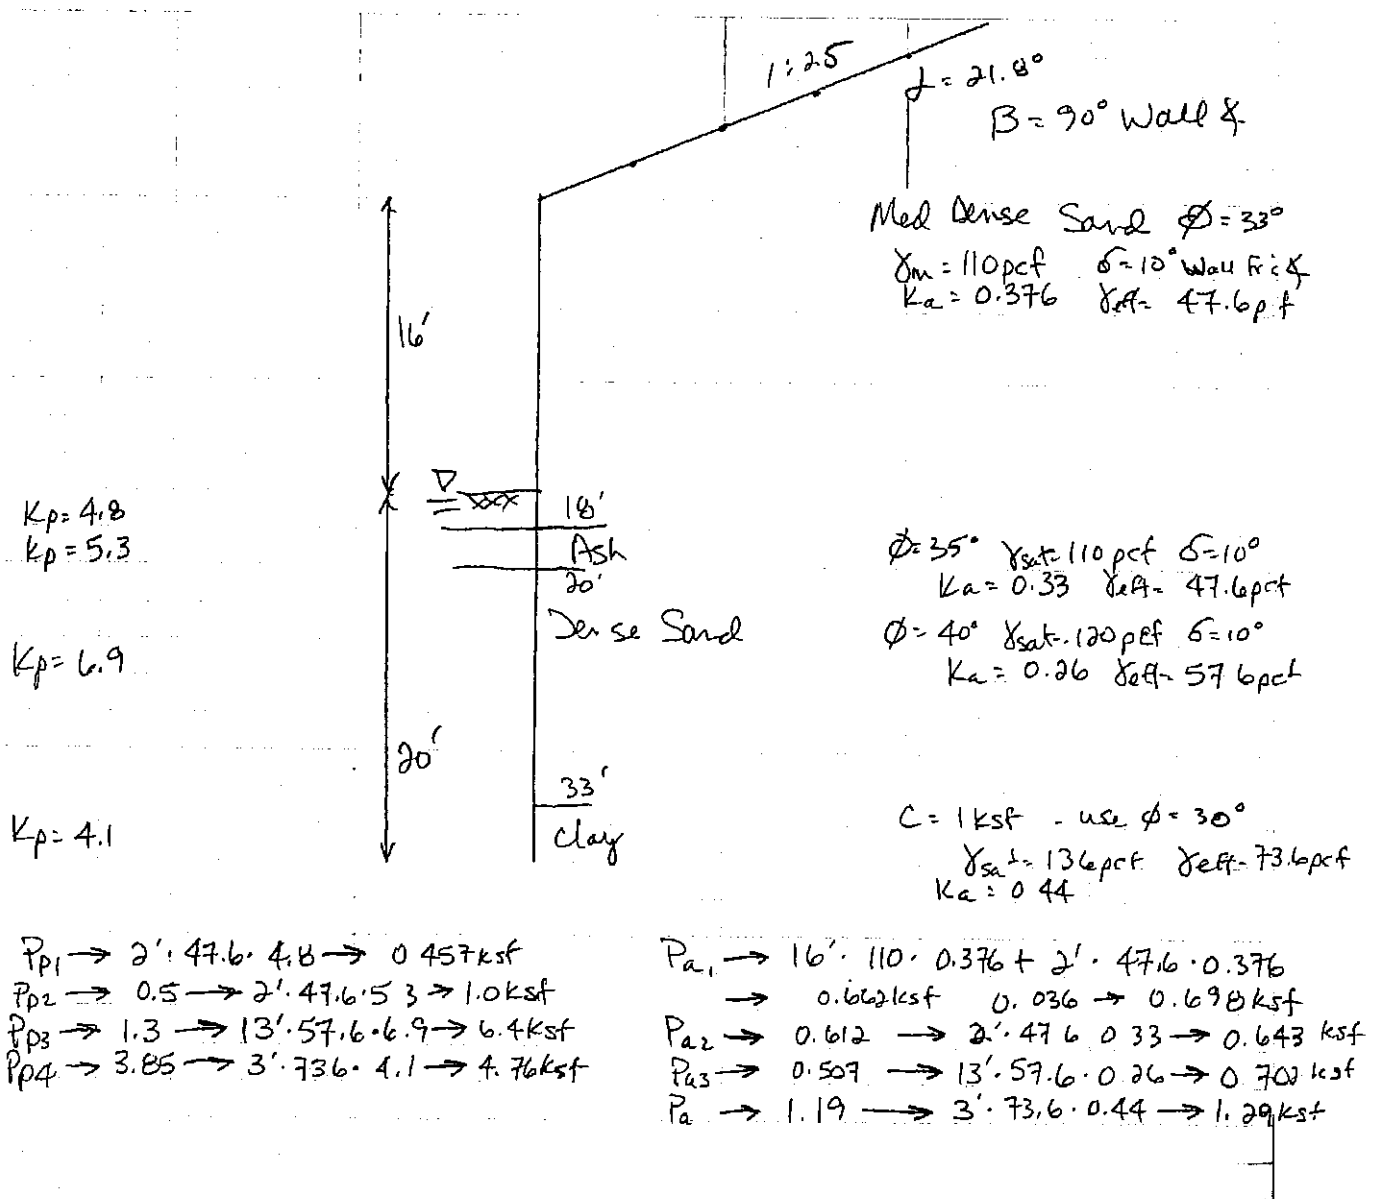 1:25
α = 21.8°
B = 90° Wall ∡
Med Dense Sand Ø = 33°
γm = 110pcf δ=10° Wall Fric ∡
Ka = 0.376 γeff = 47.6pcf
16'
18'
Kp = 4.8
Kp = 5.3
Ash
20'
Ø = 35° γsat = 110 pcf δ=10°
Ka = 0.33 γeff = 47.6pcf
Dense Sand
Ø = 40° γsat = 120 pcf δ=10°
Ka = 0.26 γeff = 57 6pcf
Kp = 6.9
20'
33'
Clay
Kp = 4.1
C = 1 ksf - use Ø = 30°
γsat = 136pcf γeff = 73.6pcf
Ka = 0 44
Pp1 → 2' · 47.6 · 4.8 → 0 457ksf
Pp2 → 0.5 → 2' · 47.6 · 5 3 → 1.0ksf
Pp3 → 1.3 → 13' · 57.6 · 6.9 → 6.4ksf
Pp4 → 3.85 → 3' · 736 · 4.1 → 4.76ksf
Pa1 → 16' · 110 · 0.376 + 2' · 47.6 · 0.376
→ 0.662ksf 0.036 → 0.698ksf
Pa2 → 0.612 → 2' · 47 6 0 33 → 0.643 ksf
Pa3 → 0.507 → 13' · 57.6 · 0 26 → 0 702 ksf
Pa → 1.19 → 3' · 73.6 · 0.44 → 1.29ksf